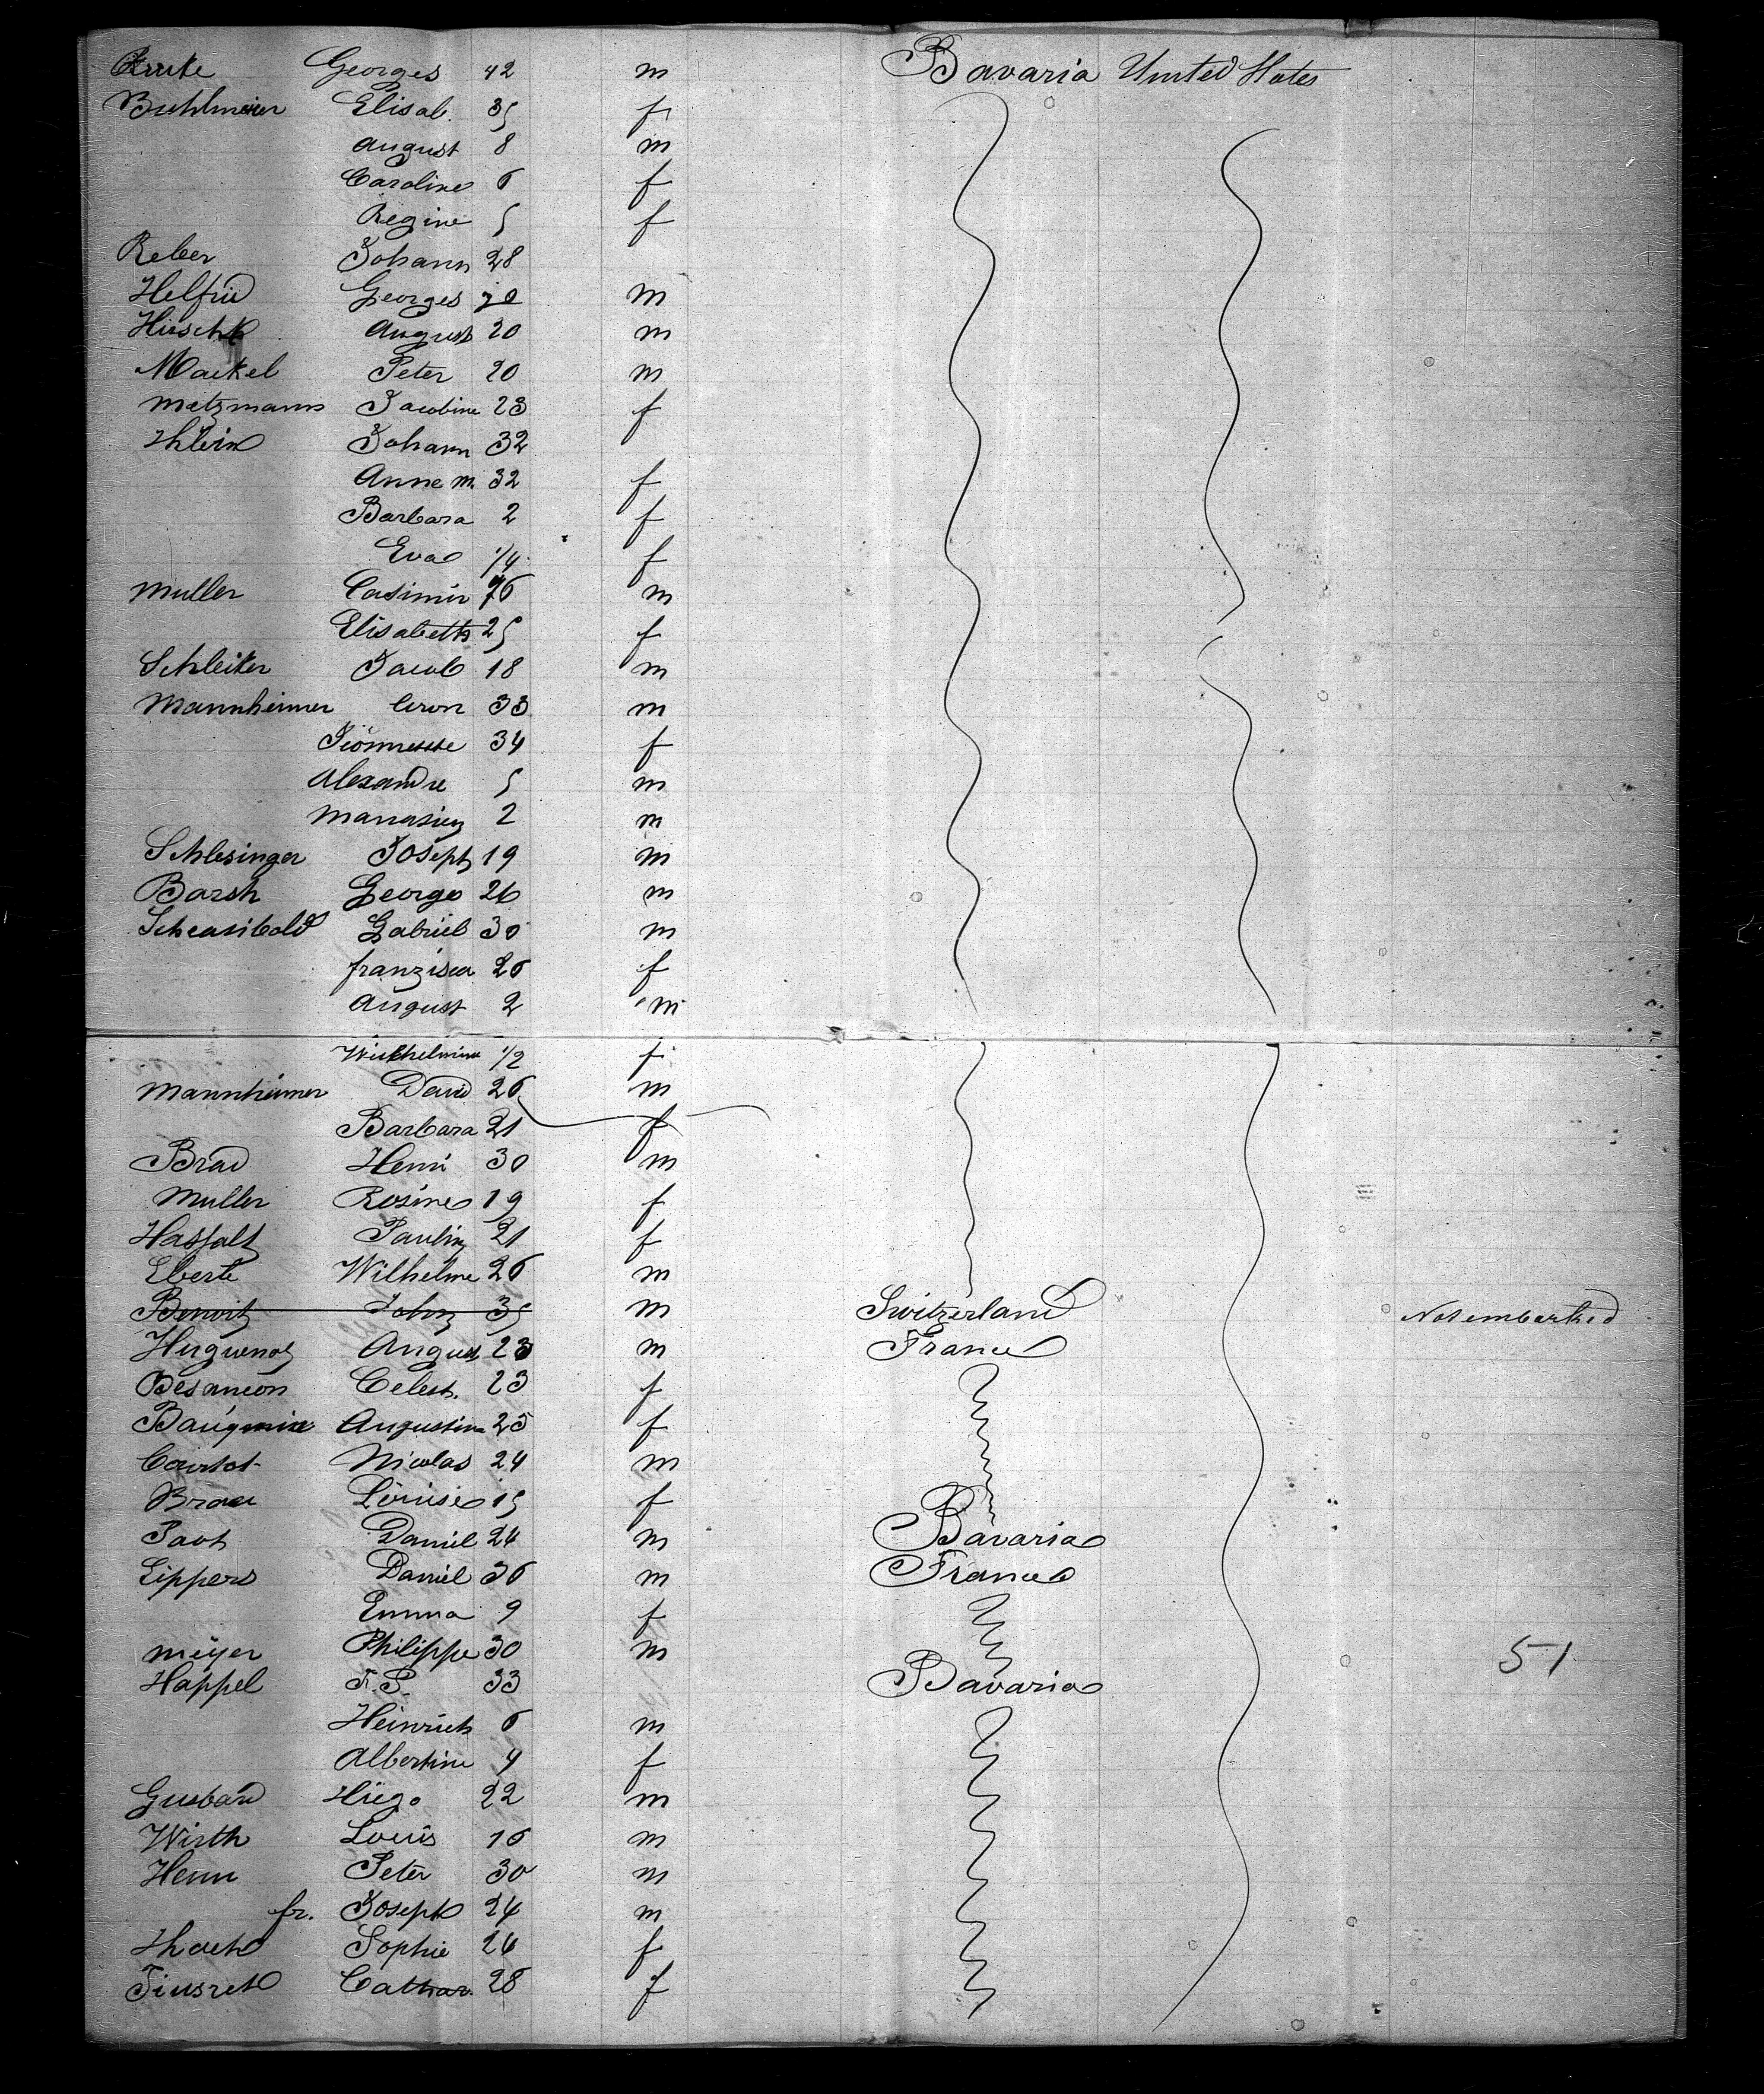 Georges 42 m Bavaria United States
Buhlmeier Elisab. 35 f
August 8 m
Caroline 6 f
Regine 5 f
Reber Johann 28
Helfrid Georges m
August 20 m
Mackel Peter 20 m
Metzmann Jacobine 23 f
Johann 32
Anne M. 32 f
Barbara 2 f
Eva 1/4 f
Muller Casimir m
Elisabeth 25 f
Schleiter Jacob 18 m
Mannheimer Aron 33 m
34 f
Alexandre 5 m
2 m
Schlesinger Joseph 19 m
Barsh George 26 m
Gabriel 30 m
franzisca 26 f
August 2 m
Wilhelmine 1/2 f
Mannheimer David 26 m
Barbara 21 f
Brad Henri 30 m
Muller Rosine 19 f
Paulin 21 f
Eberle Wilhelme 26 m
Benoit John 35 m Switzerland Not embarked
Huguenot August 23 m France
Besancon Celest. 23 f
Augustine 25 f
Courtot Nicolas 24 m
Louise 15 f
Daniel 24 m Bavaria
Lippers Daniel 36 m France
Emma 9 f
Meyer Philippe 30 m 51
Happel F. P. 33 Bavaria
Heinrich 6 m
Albertine 4 f
Hugo 22 m
Wirth Louis 16 m
Henn Peter 30 m
fr. Joseph 24 m
Sophie 24 f
Cathar. 28 f